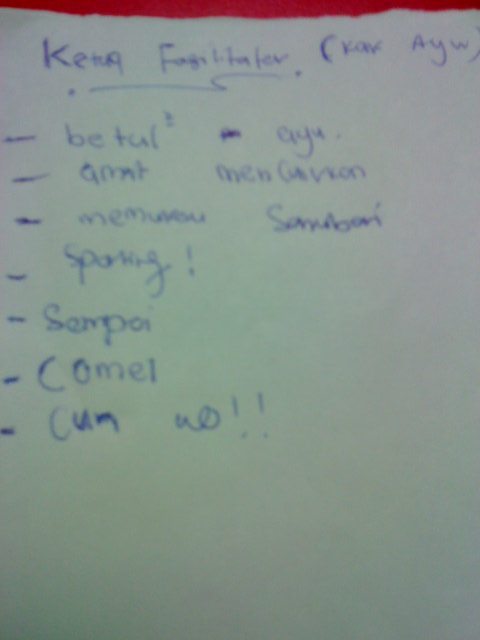 Kena Fasilitator (Kak Ayu)
- betul² - ayu.
- amat mencuitkan
- sanubari
- Sporting!
- Sempoi
- Comel
- Cun wo!!